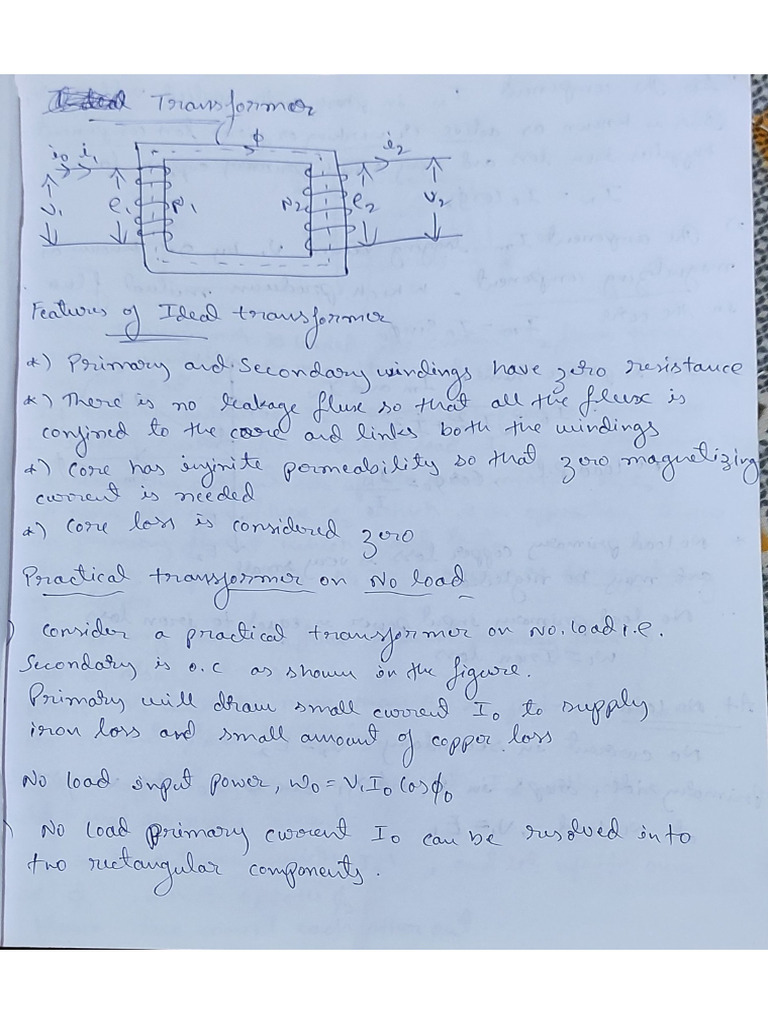 Transformer
φ
i₀ i₁
i₂
v₁ e₁ P₁ P₂ e₂ v₂
Features of Ideal transformer
*) Primary and Secondary windings have zero resistance
*) There is no leakage flux so that all the flux is
confined to the core and links both the windings
*) Core has infinite permeability so that zero magnetizing
current is needed
*) Core loss is considered zero
Practical transformer on No load
) Consider a practical transformer on No. load i.e.
Secondary is o.c as shown in the figure.
Primary will draw small current I₀ to supply
iron loss and small amount of copper loss
No load input power, W₀ = V₁I₀ Cosφ₀
) No load primary current I₀ can be resolved into
two rectangular components.